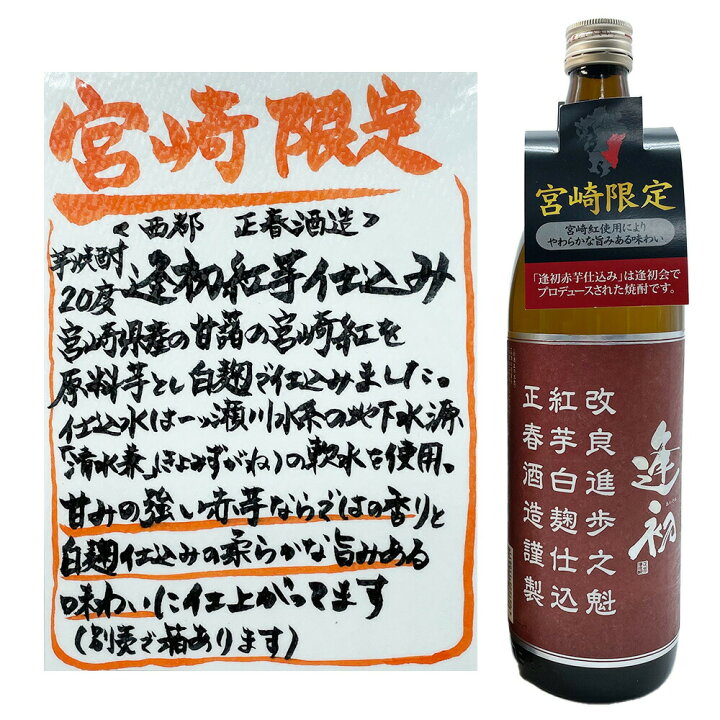 宮崎限定
<西都 正春酒造>
芋焼酎
20度
逢初紅芋仕込み
宮崎県産の甘藷の宮崎紅を
原料芋とし白麹で仕込みました。
仕込水は一ッ瀬川水系の地下水源
「清水兼」(きよみずがね)の軟水を使用。
甘みの強い赤芋ならではの香りと
白麹仕込みの柔らかな旨みある
味わいに仕上がってます
(別売で箱あります)
宮崎限定
宮崎紅使用により
やわらかな旨みある味わい
「逢初赤芋仕込み」は逢初会で
プロデュースされた焼酎です。
逢初
改良進歩之魁
紅芋白麹仕込
正春酒造謹製